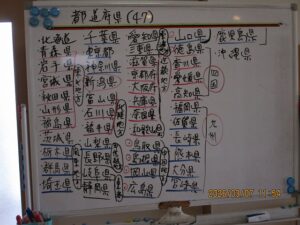 都道府県(47)
北海道
青森県
岩手県
宮城県
秋田県
山形県
福島県
茨城県
栃木県
群馬県
埼玉県
千葉県
東京都
神奈川県
新潟県
富山県
石川県
福井県
山梨県
長野県
岐阜県
静岡県
愛知県
三重県
滋賀県
京都府
大阪府
兵庫県
奈良県
和歌山県
鳥取県
島根県
岡山県
広島県
山口県
徳島県
香川県
愛媛県
高知県
福岡県
佐賀県
長崎県
熊本県
大分県
宮崎県
鹿児島県
沖縄県
四国
九州